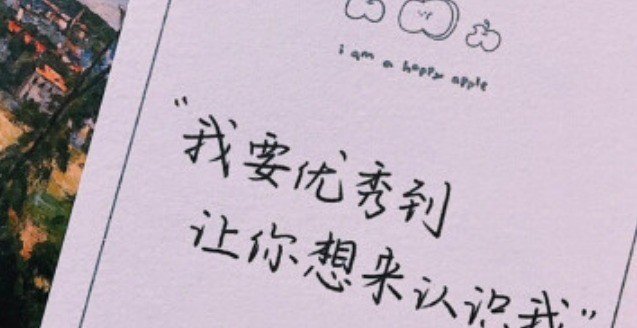 i am a happy apple
"我要优秀到
让你想来认识我"